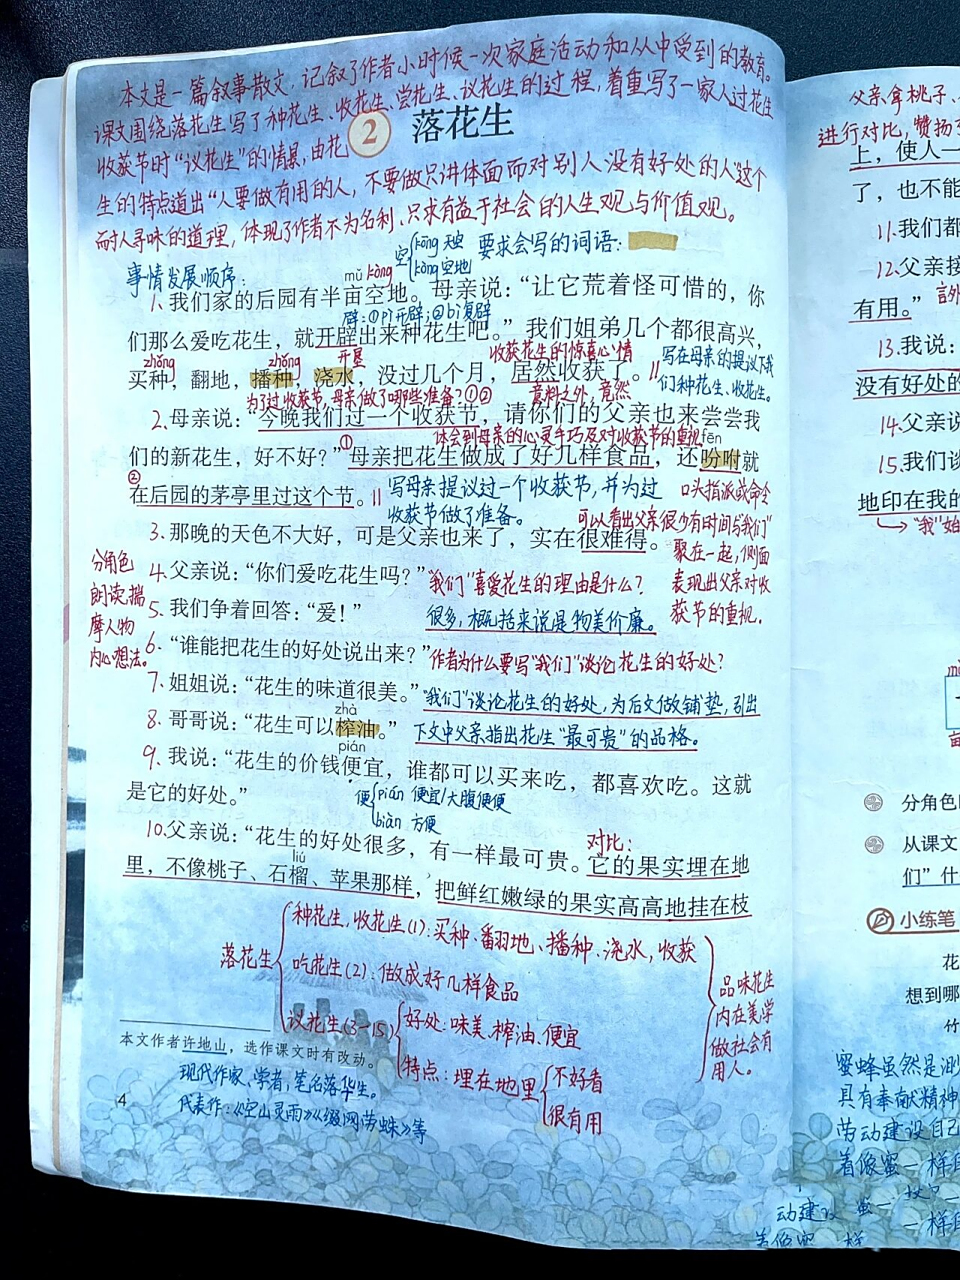 本文是一篇叙事散文，记叙了作者小时候一次家庭活动和从中受到的教育。
课文围绕落花生写了种花生、收花生、尝花生、议花生的过程，着重写了一家人过花生
收获节时“议花生”的情景，由花
2 落花生
生的特点道出“人要做有用的人，不要做只讲体面而对别人没有好处的人”这个
耐人寻味的道理，体现了作者不为名利、只求有益于社会的人生观与价值观。
空 kōng 天空
kòng 空地
要求会写的词语：
事情发展顺序：
mǔ kòng
1.我们家的后园有半亩空地。母亲说：“让它荒着怪可惜的，你
辟：①pì开辟；②bì复辟
们那么爱吃花生，就开辟出来种花生吧。”我们姐弟几个都很高兴，
zhǒng zhǒng 开垦 收获花生的惊喜心情
买种，翻地，播种，浇水，没过几个月，居然收获了。‖
写在母亲的提议下我
们种花生、收花生。
为了过收获节，母亲做了哪些准备？①② 意料之外，竟然
2.母亲说：“今晚我们过一个收获节，请你们的父亲也来尝尝我
① 体会到母亲的心灵手巧及对收获节的重视 fēn
们的新花生，好不好？”母亲把花生做成了好几样食品，还吩咐就
②
在后园的茅亭里过这个节。‖
写母亲提议过一个收获节，并为过
收获节做了准备。
口头指派或命令
可以看出父亲很少有时间与“我们”
聚在一起，侧面
表现出父亲对收
获节的重视．
3.那晚的天色不大好，可是父亲也来了，实在很难得。
分角色
朗读，揣
摩人物
内心想法。
4.父亲说：“你们爱吃花生吗？”
“我们”喜爱花生的理由是什么？
5.我们争着回答：“爱！”
很多，概括来说是物美价廉。
6.“谁能把花生的好处说出来？”
作者为什么要写“我们”谈论花生的好处？
7.姐姐说：“花生的味道很美。”
“我们”谈论花生的好处，为后文做铺垫，引出
zhà
8.哥哥说：“花生可以榨油。”
下文中父亲指出花生“最可贵”的品格。
pián
9.我说：“花生的价钱便宜，谁都可以买来吃，都喜欢吃。这就
是它的好处。”
便 pián 便宜/大腹便便
biàn 方便
10.父亲说：“花生的好处很多，有一样最可贵。它的果实埋在地
对比：
liú
里，不像桃子、石榴、苹果那样，把鲜红嫩绿的果实高高地挂在枝
落花生
种花生，收花生(1)：买种、翻地、播种、浇水，收获
吃花生(2)：做成好几样食品
议花生(3-15)
好处：味美、榨油、便宜
特点：埋在地里
不好看
很有用
品味花生
内在美学
做社会有
用人。
本文作者许地山，选作课文时有改动。
现代作家、学者，笔名落华生。
代表作：《空山灵雨》《缀网劳蛛》等
4
父亲拿桃子、
进行对比，赞扬
上，使人一
了，也不能
11.我们都
12.父亲接
有用。”
言外
13.我说：
没有好处的
14.父亲说
15.我们谈
地印在我的
“我”始
分角色
从课文
们”什
小练笔
花
想到哪
竹
蜜蜂虽然是
具有奉献精神
劳动建设自己
着像蜜一样